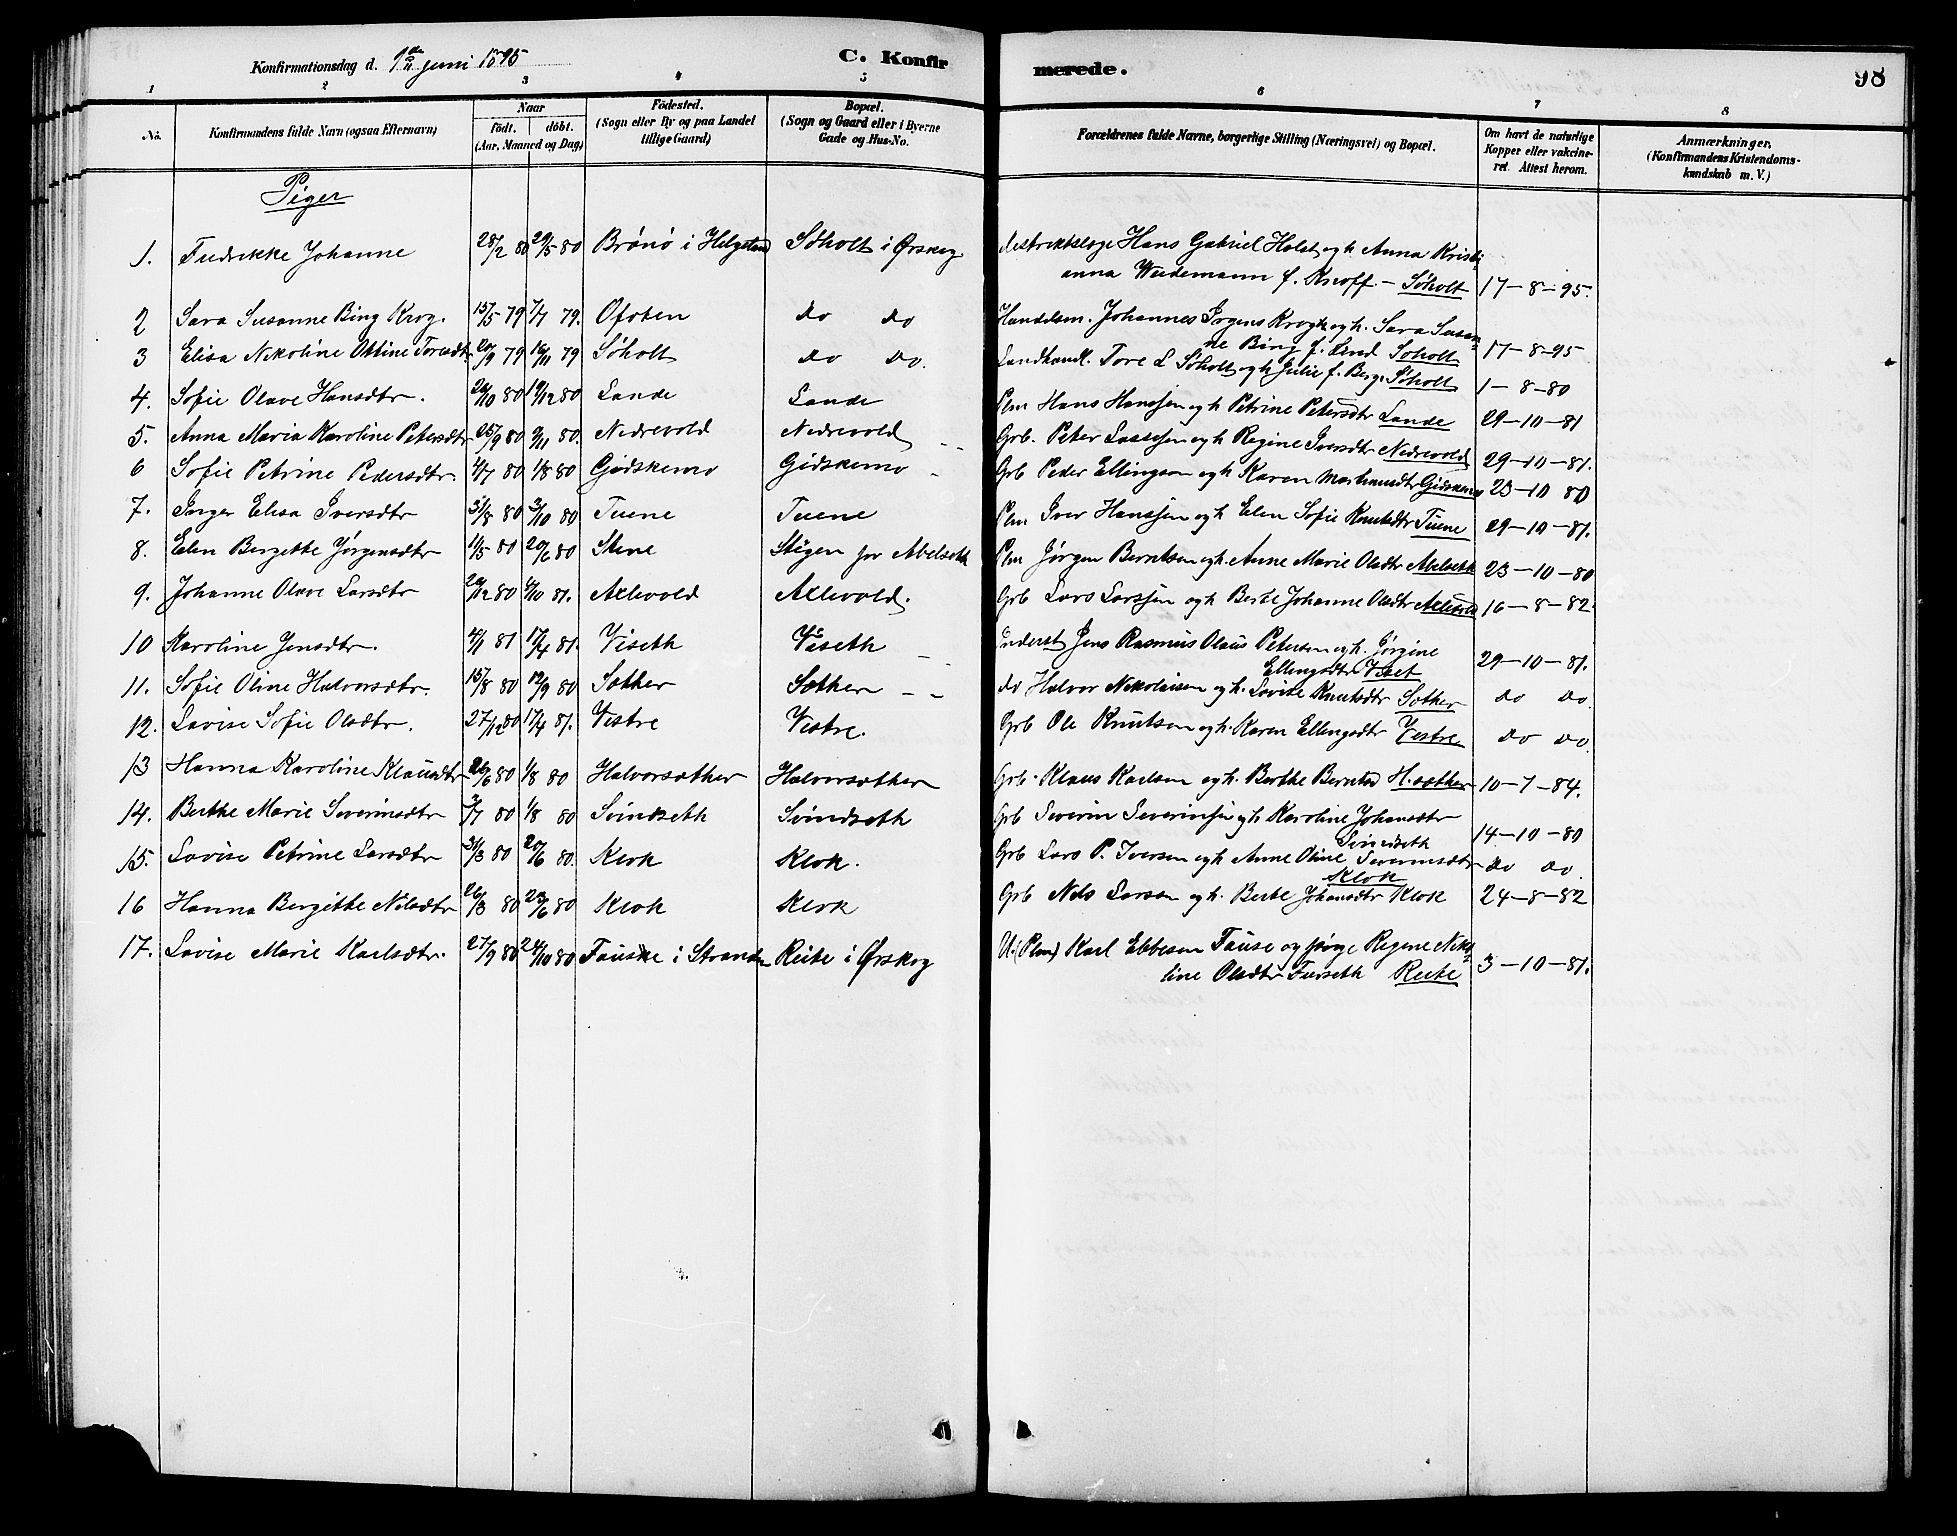 Konfirmationsdag d. 9de juni 1895
C. Konfirmerede.
98
1 2 3 4 5 6 7 8
No.
Konfirmandens fulde Navn (ogsaa Efternavn)
Naar
födt. döbt.
(Aar, Maaned og Dag)
Födested.
(Sogn eller By og paa Landet
tillige Gaard)
Bopæl.
(Sogn og Gaard eller i Byerne
Gade og Hus-No.
Forældrenes fulde Navne, borgerlige Stilling (Næringsvei) og Bopæl.
Om havt de naturlige
Kopper eller vakcine-
ret. Attest herom.
Anmærkninger.
(Konfirmandens Kristendoms-
kundskab m. V.)
Piger
1. Fredrikke Johanne 28/2 80 29/5 80 Brönö i Helgeland Söholt i Ørskog destriktslæge Hans Gabriel Holst og h. Anna Kristi-
anna Wiedemann f. Knoff - Søholt 17-8-95.
2 Sara Susanne Bing Krog. 15/5 79 7/7 79. Ofoten do do Handelsm. Johannes Jrgens Krogh og h. Sara Susan-
ne Bing f. Lind Søholt 17-8-95
3 Elisa Nikoline Ottine Toresdtr. 20/9 79 16/11 79 Søholt do do. Landhandl. Tore L Søholt og h Julie f. Berg. Søholt 1-8-80
4. Sofie Olave Hansdtr. 20/10 80 19/12 80 Lande Lande Plm Hans Hanssen og h Petrine Petersdtr Lande 29-10-81
5. Anna Maria Karoline Petersdtr 25/9 80 9/11 80. Nedrevold Nedrevold Grb. Peter Lassesen og h Regine Iversdtr Nedrevold 29-10-81.
6 Sofie Petrine Pedersdtr. 4/7 80 1/8 80 Gidskemo Gidskemo Grb Peder Ellingsen og h Karen Gidskemo 23-10 80
7. Inger Elisa Iversdtr 31/8 80 3/10 80 Tuene Tuene Plm Iver Hanssen og h Elen Sofie Knutsdtr Tuene 29-10-81.
8. Elen Bergette Jørgensdtr 11/5 80 20/6 80 Stene Stigen pr Abelseth Plm Jørgen Berntsen og h. Anne Marie Olsdtr Abelseth 23-10-80
9. Johanne Olave Larsdtr 20/12 80 /10 81. Axlevold Axlevold. Grb Lars Larssen og h. Berte Johanne Olsdtr Axlevold 16-8-82.
10 Karoline Jensdtr. 4/1 81 17/4 81. Viseth Viseth Inderst Jens Rasmus Olaus Petersen og h. Jørgine
Ellingsdtr Viset 29-10-81.
11. Sofie Oline Halvorsdtr. 15/8 80 12/9 80 Sæther Sæther do Halvor Nikolaisen og h. Lovise Knutsdtr Sæther do do.
12. Lavise Sofie Olsdtr. 27/12 80 17/4 81. Vestre Vestre. Grb Ole Knutsen og h. Karen Ellingsdtr Vestre do do.
13 Hanna Karoline Klausdtr 26/6 80 1/8 80 Halvorsæther Halvorsæther Grb. Klaus Karlsen og h. Berthe Berntsd H.sæther 10-7-84.
14. Berthe Marie Severinsdtr /7 80 1/8 80 Svindseth Svindseth Grb Severin Severinsen og h Karoline Johansdtr
Svindseth 14-10-80
15. Lovise Petrine Larsdtr 31/3 80 20/6 80. Klok Klok. Grb Lars P. Iversen og h Anne Oline Severinsdtr
Klok do do.
16 Hanna Bergitte Nilsdtr 26/3 80 20/6 80 Klok Klok Grb Nils Larsen og h. Berte Johansdtr Klok 24-8-82
17. Lovise Marie Karlsdtr. 27/9 80 24/10 80 Fauske i Stranden Reite i Ørskog U. (Plm) Karl Ebbesen Fause og pige Regine Niko-
line Olsdtr Furseth Reite 3-10-81.